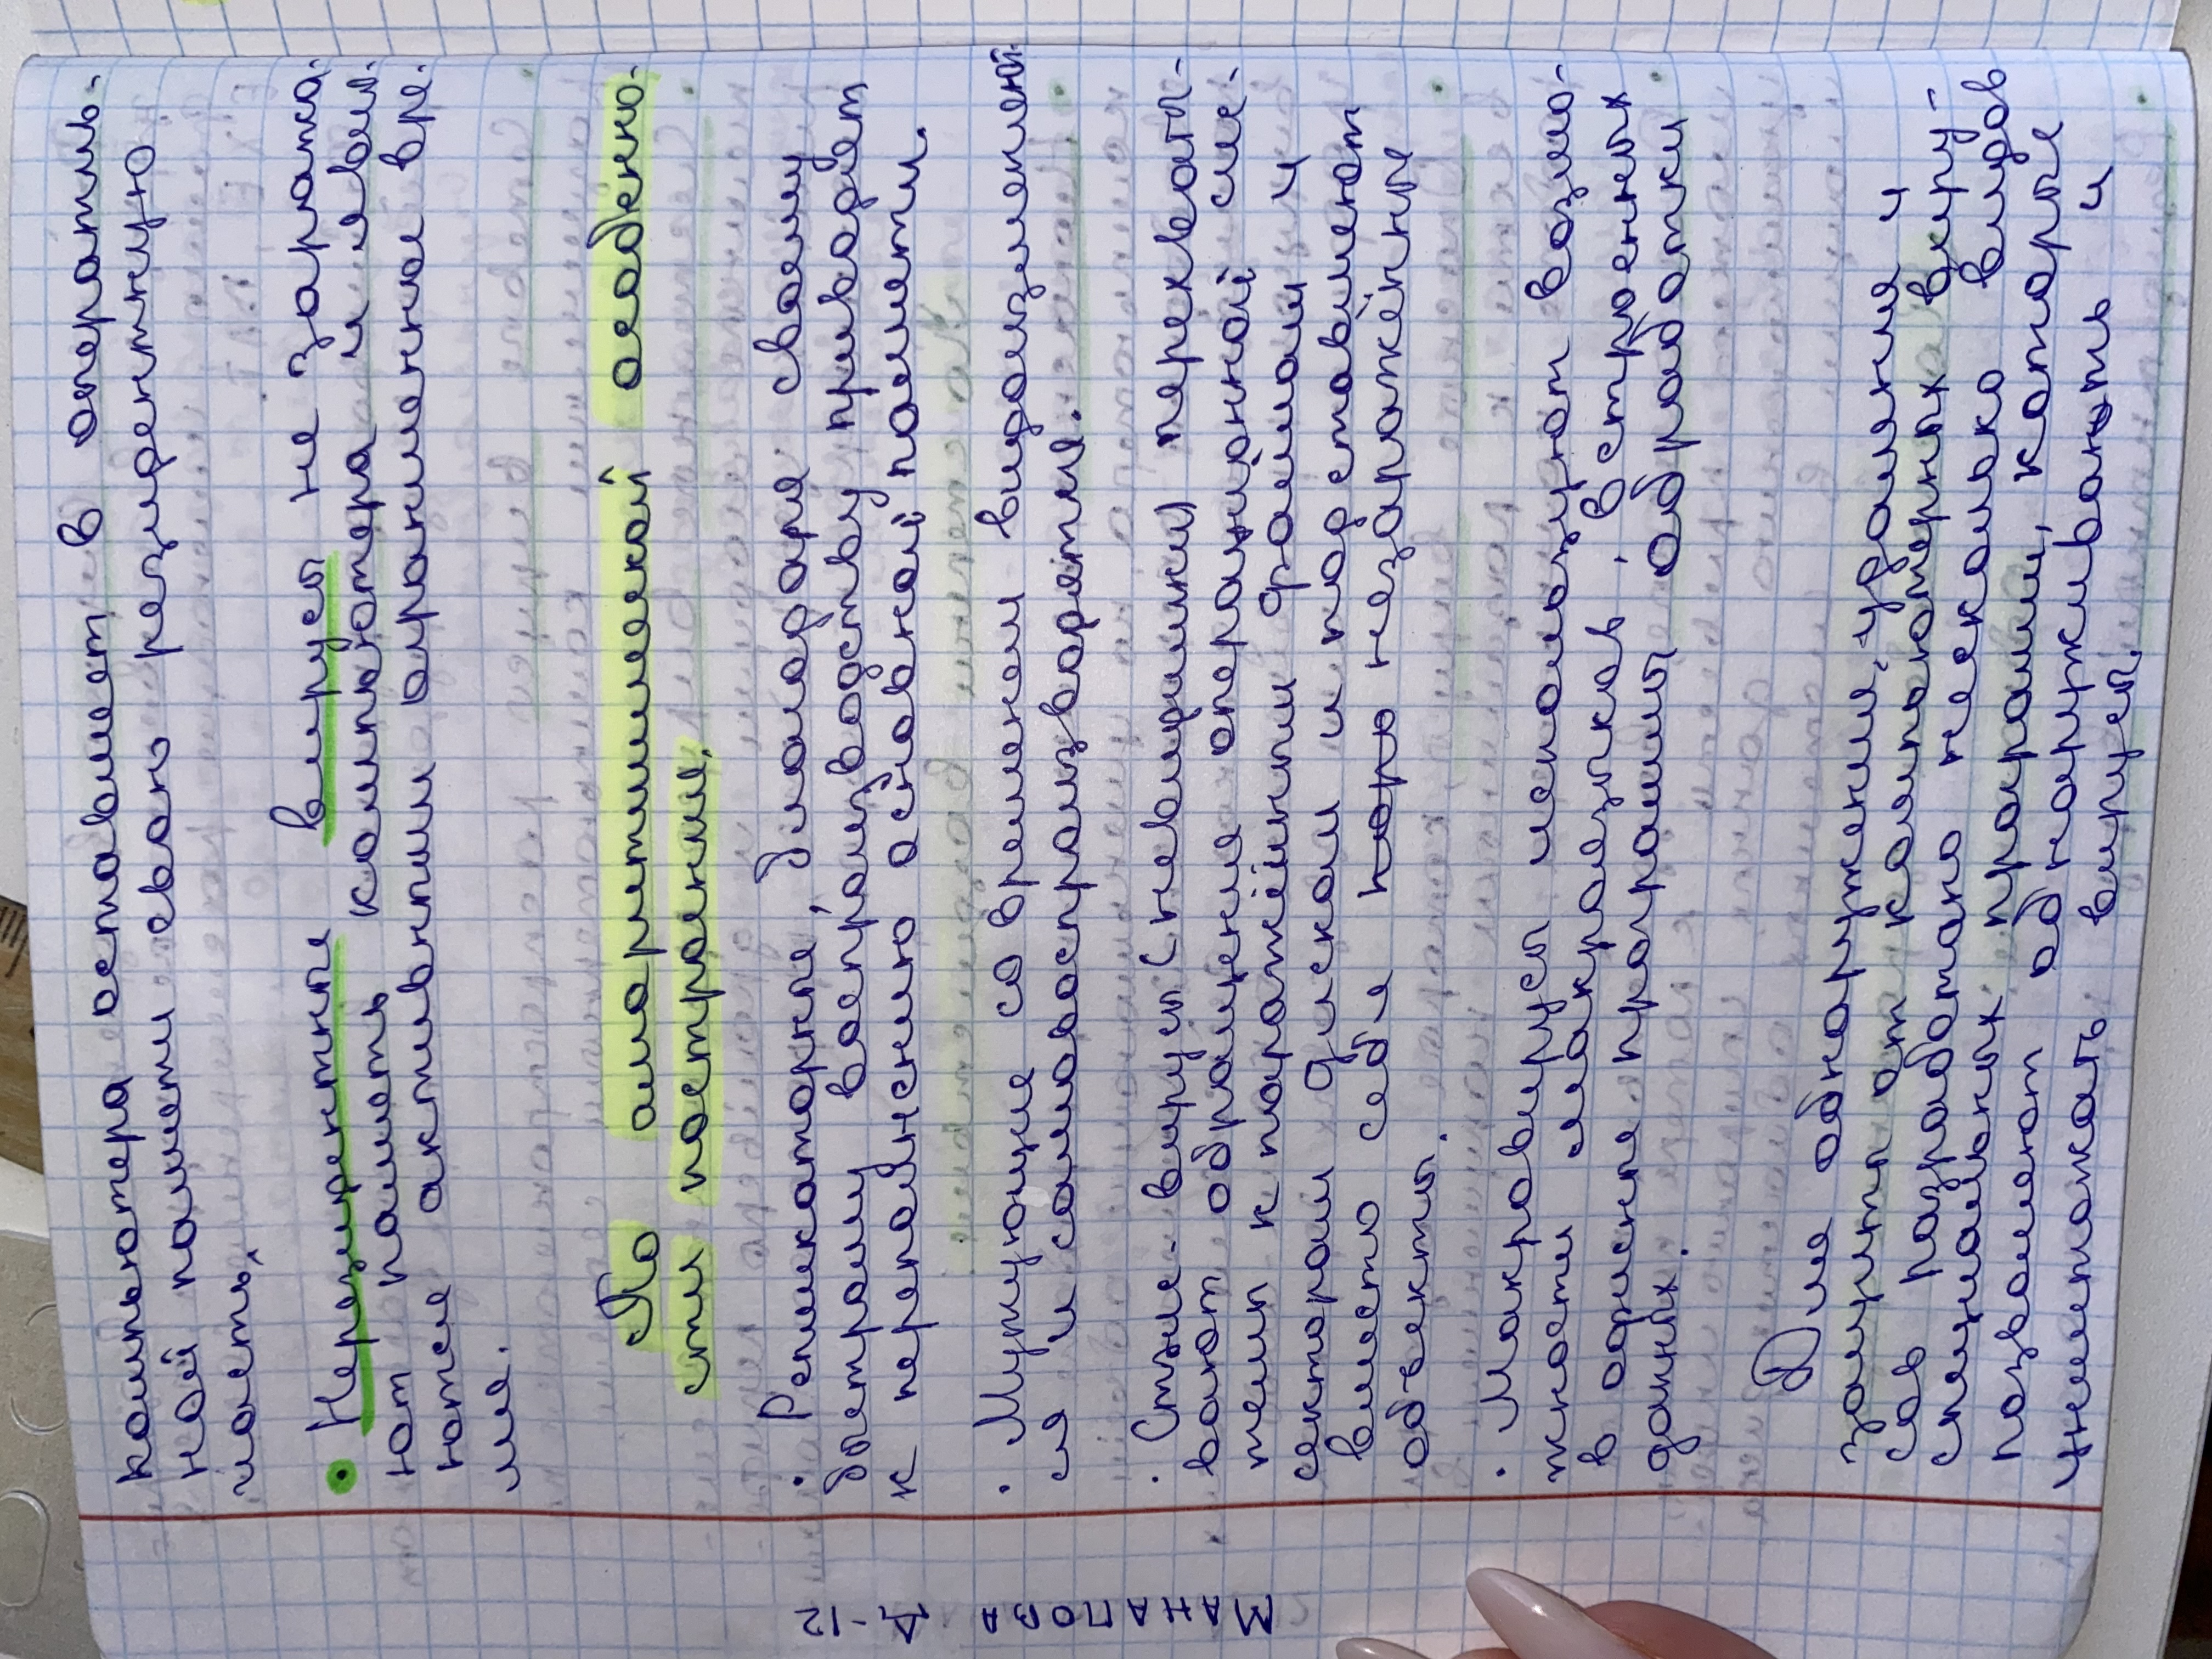 компьютера оставляет в оператив-
ной памяти свою резидентную
часть.
• Нерезидентные вирусы не заража-
ют память компьютера и явля-
ются активными ограниченное вре-
мя.
По алгоритмической особенно-
сти построения.
• Репликаторные, благодаря своему
быстрому воспроизводству приводят
к переполнению основной памяти.
• Мутирующие со временем видоизменяют-
ся и самовоспроизводятся.
• Стэлс-вирусы (невидимки) перехваты-
вают обращения операционной сис-
темы к поражённым файлам и
секторам дисков и подставляют
вместо себя незаражённые
объекты.
• Макровирусы используют возмо-
жности макроязыков, встроенных
в офисные программы обработки
данных.
Для обнаружения, удаления и
защиты от компьютерных виру-
сов разработано несколько видов
специальных программ, которые
позволяют обнаруживать и
уничтожать вирусы.
МАНАПОВА Д-12